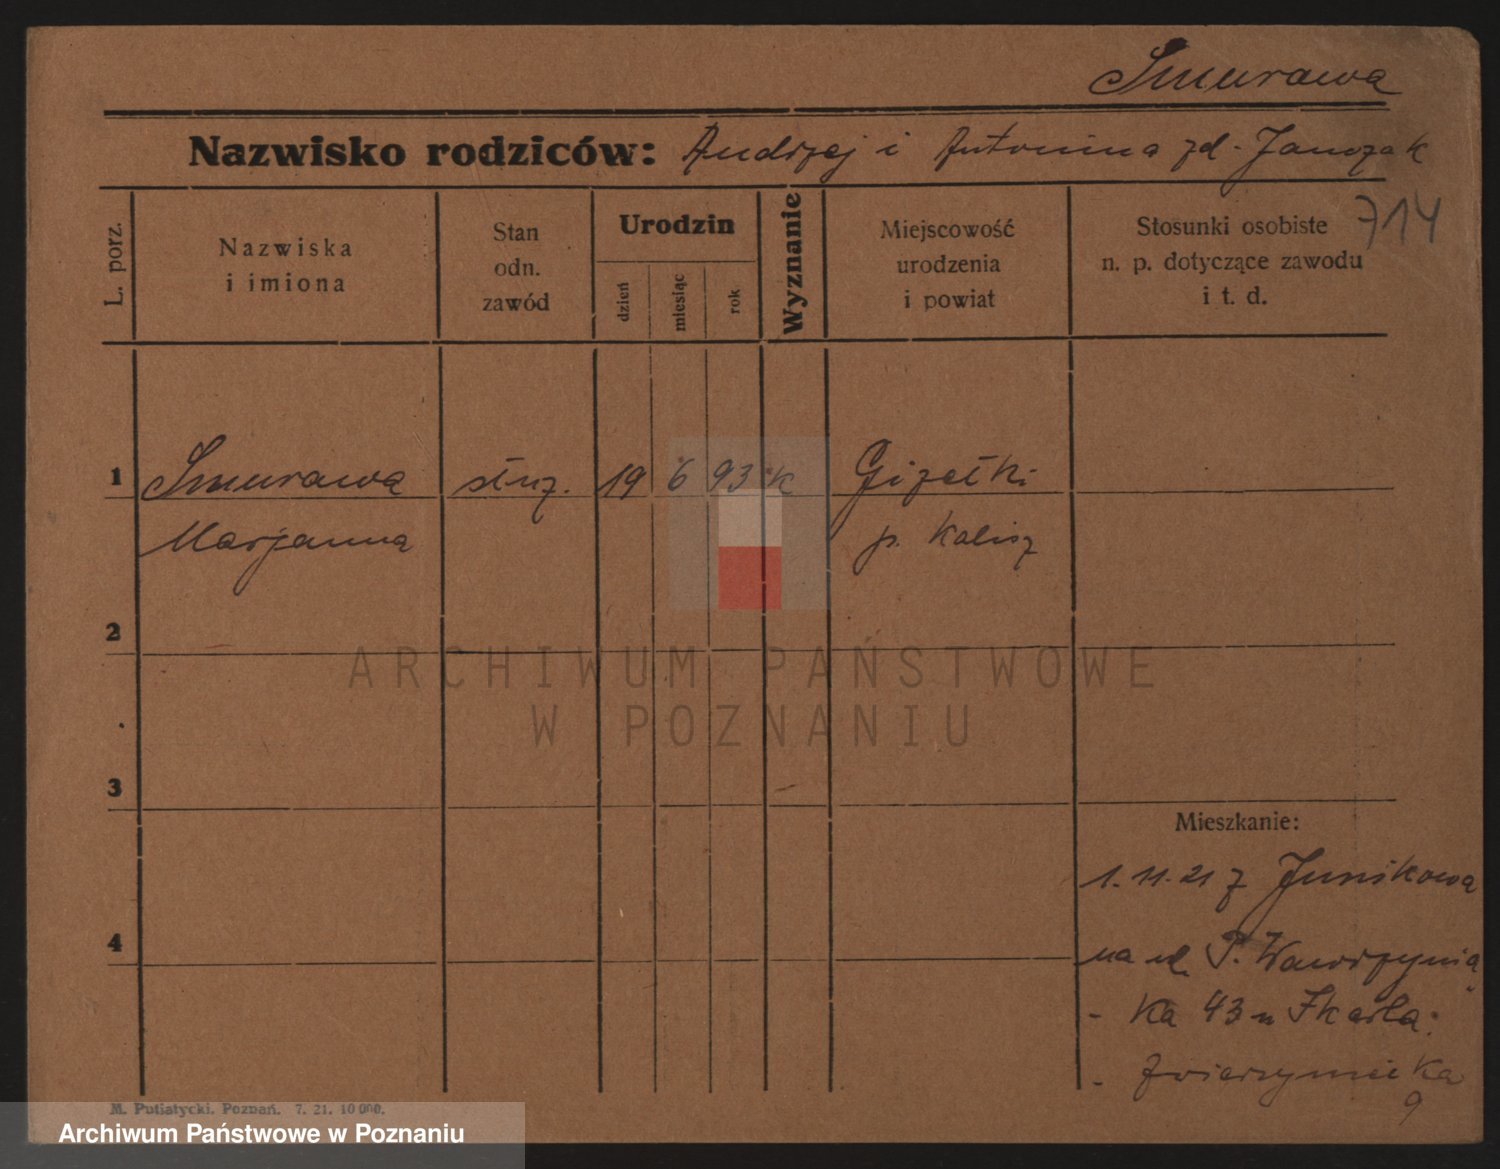 Smurawa
Nazwisko rodziców: Andrzej i Antonina zd. Janczak
714
L. porz.
Nazwiska i imiona
Stan odn. zawód
Urodzin
dzień
miesiąc
rok
Wyznanie
Miejscowość urodzenia i powiat
Stosunki osobiste n. p. dotyczące zawodu i t. d.
1 Smurawa służ. 19 6 93 k Gizełki
Marjanna p. Kalisz
2
ARCHIWUM PAŃSTWOWE
W POZNANIU
3
Mieszkanie:
1.11.21 z Junikowa
4
na ul. P. Wawrzynia
- ka 43 u
- Zwierzyniecka
9
M. Putiatycki, Poznań. 7. 21. 10 000.
Archiwum Państwowe w Poznaniu